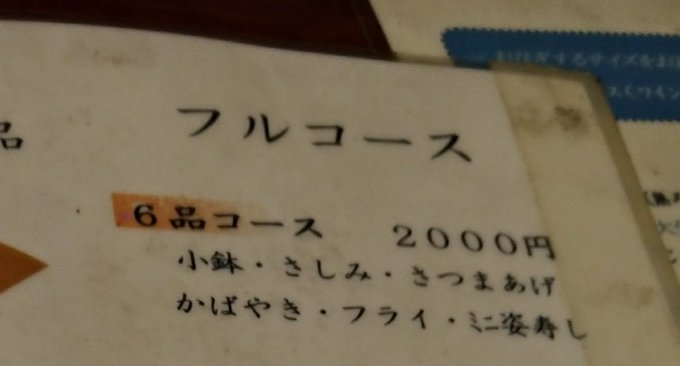 フルコース
品
6品コース 2000円
小鉢・さしみ・さつまあげ
かばやき・フライ・ミニ姿寿し